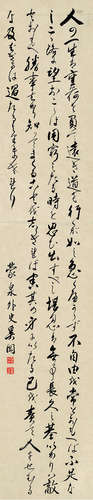 人の一生は重荷を負て遠き道を行が如し急ぐべからず不自由を常とおもへば不足な
し心に望おこらば困窮したる時を思ひ出すべし堪忍は無事長久の基いかりは敵
とおもへ勝事ばかり知てまくる事をしらざれば害其身にいたる己を責て人をせむる
な及ばざるは過たるよりまされり
蒙泉外史